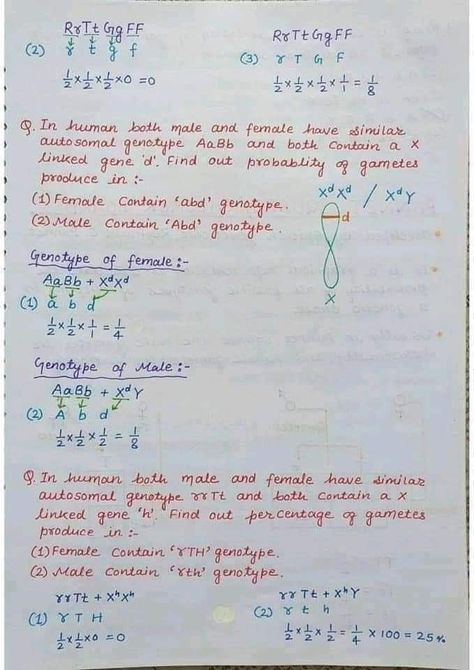 RrTtGgFF
(2) r t g f
1/2 × 1/2 × 1/2 × 0 = 0
RrTtGgFF
(3) r T G F
1/2 × 1/2 × 1/2 × 1/1 = 1/8
Q. In human both male and female have similar
autosomal genotype AaBb and both contain a X
linked gene 'd'. Find out probablity of gametes
produce in :-
(1) Female contain 'abd' genotype.
(2) Male contain 'Abd' genotype.
XᵈXᵈ / XᵈY
d
X
Genotype of female :-
AaBb + XᵈXᵈ
(1) a b d
1/2 × 1/2 × 1/1 = 1/4
Genotype of Male :-
AaBb + XᵈY
(2) A b d
1/2 × 1/2 × 1/2 = 1/8
Q. In human both male and female have similar
autosomal genotype rrTt and both contain a X
linked gene 'h'. Find out percentage of gametes
produce in :-
(1) Female contain 'rTH' genotype.
(2) Male contain 'rth' genotype.
rrTt + XʰXʰ
(1) r T H
1/2 × 1/2 × 0 = 0
rrTt + XʰY
(2) r t h
1/2 × 1/2 × 1/2 = 1/4 × 100 = 25%